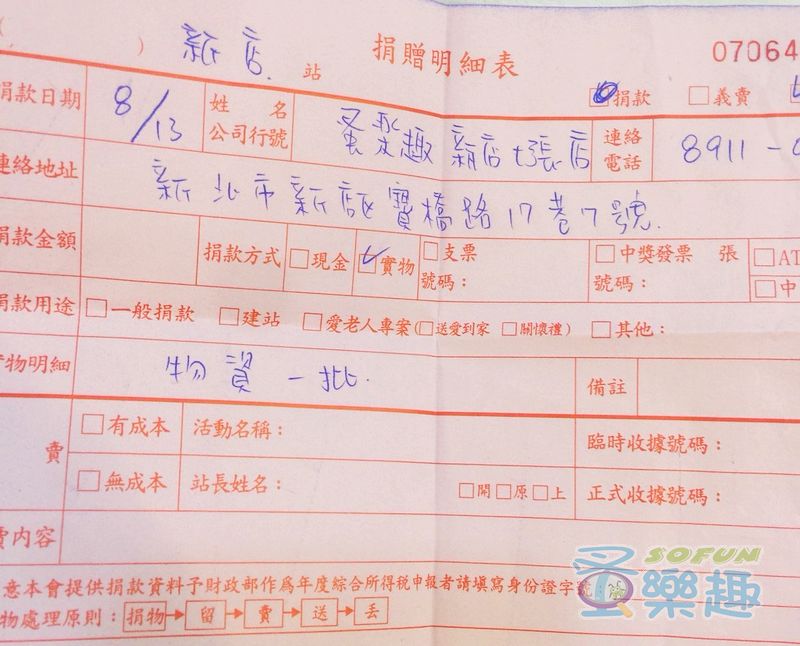 新店 站 捐贈明細表 07064
捐款 義賣
捐款日期 8/13 姓名 公司行號 蚤樂趣 新店七張店 連絡電話 8911-
連絡地址 新北市新店區寶橋路17巷7號
捐款金額 捐款方式 現金 實物 支票 號碼： 中獎發票 張 號碼： AT 中
捐款用途 一般捐款 建站 愛老人專案(送愛到家 關懷禮) 其他：
實物明細 物資一批 備註
賣 有成本 活動名稱： 臨時收據號碼：
無成本 站長姓名： 開 原 上 正式收據號碼：
賣內容
意本會提供捐款資料予財政部作為年度綜合所得稅申報者請填寫身份證字號
物處理原則：捐物→留→賣→送→丟
SOFUN
蚤樂趣